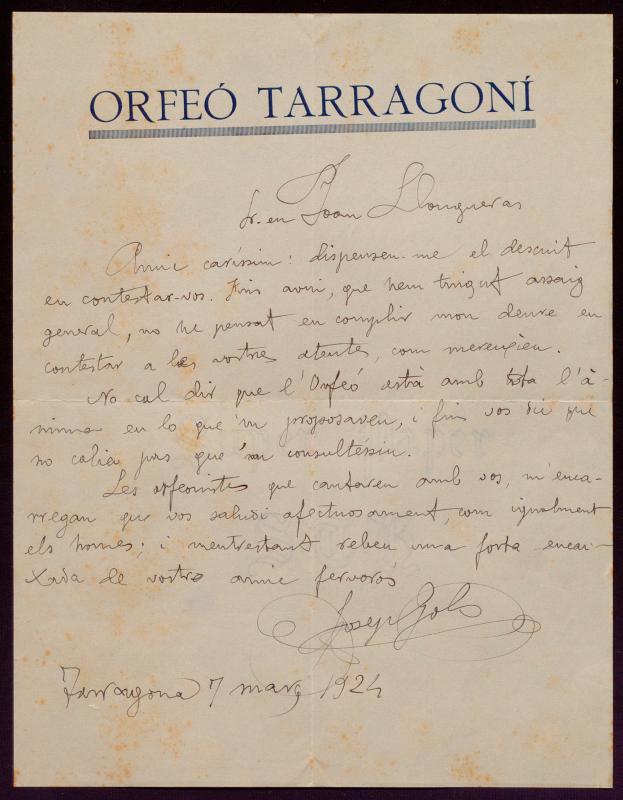 ORFEÓ TARRAGONÍ
Sr. en Joan Llongueras
Amic caríssim: dispenseu-me el descuit
en contestar-vos. Fins avui, que hem tingut assaig
general, no he pensat en complir mon deure en
contestar a les vostres atentes, com mereixien.
No cal dir que l'Orfeó està amb tota l'à-
nima en lo que'm proposaveu, i fins vos dic que
no calia pas que'm consultéssiu.
Les orfeonistes que cantaren amb vos, m'enca-
rregan que vos saludi afectuosament, com igualment
els homes; i mentrestant rebeu una forta encai-
xada de vostre amic fervorós
Josep Gols
Tarragona 7 març 1924